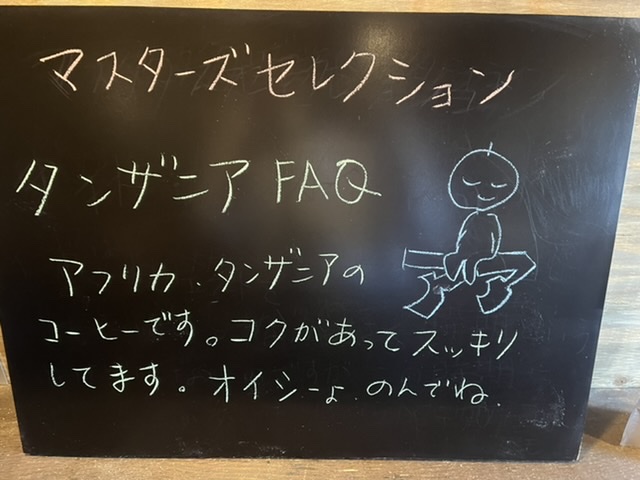 マスターズセレクション
タンザニア FAQ
アフリカ、タンザニアの
コーヒーです。コクがあってスッキリ
してます。オイシーよ、のんでね